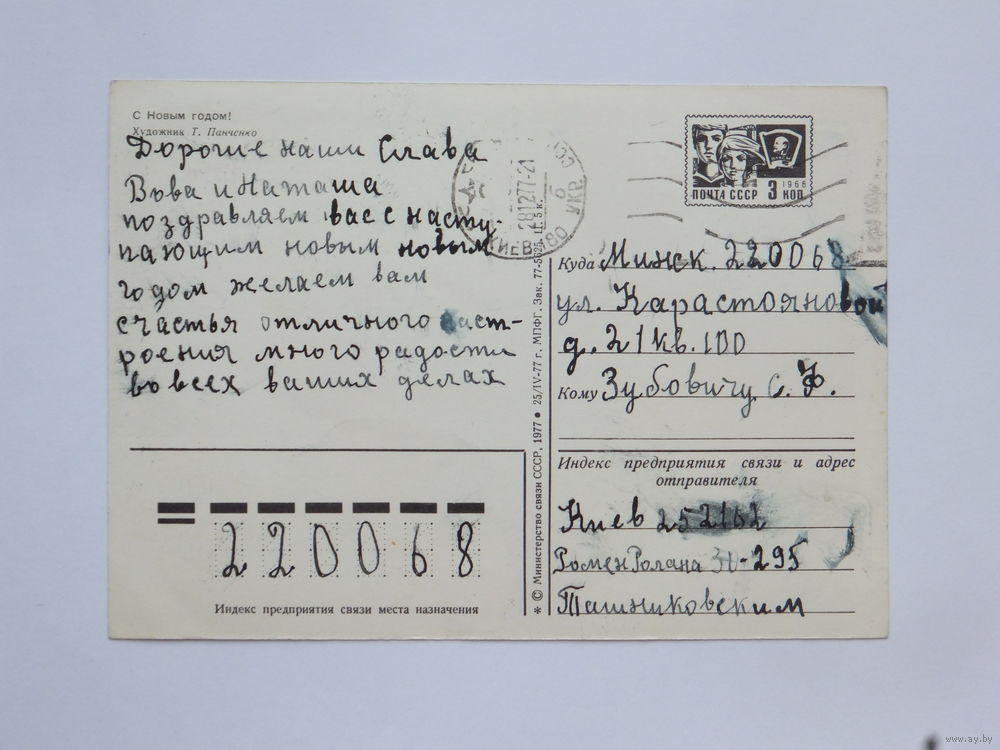 С Новым годом!
Художник Т. Панченко
Дорогие наши Слава
Вова и Наташа
поздравляем вас с насту-
пающим новым новым
годом желаем вам
счастья отличного наст-
роения много радости
во всех ваших делах
Индекс предприятия связи места назначения
220068
* © Министерство связи СССР, 1977 • 25/IV-77 г. МПФГ. Зак. 77-5625. Ц. 5 к.
КИЕВ 80
УКР.
281277-21
1966
ПОЧТА СССР 3 КОП
Куда Минск. 220068
ул. Карастояновой
д. 21 кв. 100
Кому Зубовичу С. Ф.
Индекс предприятия связи и адрес
отправителя
Киев 252162
Ромен Ролана -295
Ташниковским
www.ay.by